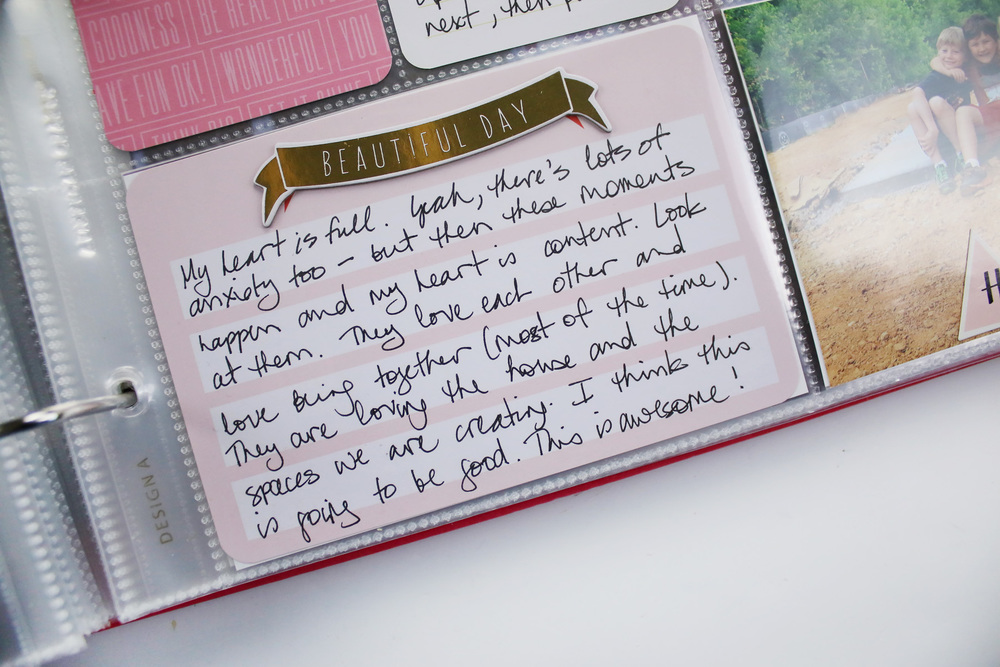 GOODNESS! BE REAL
AVE FUN OK! WONDERFUL YOU
next, then
BEAUTIFUL DAY
My heart is full. Yeah, there's lots of
anxiety too - but then these moments
happen and my heart is content. Look
at them. They love each other and
love being together (most of the time).
They are loving the house and the
spaces we are creating. I thinks this
is going to be good. This is awesome!
DESIGN A
H